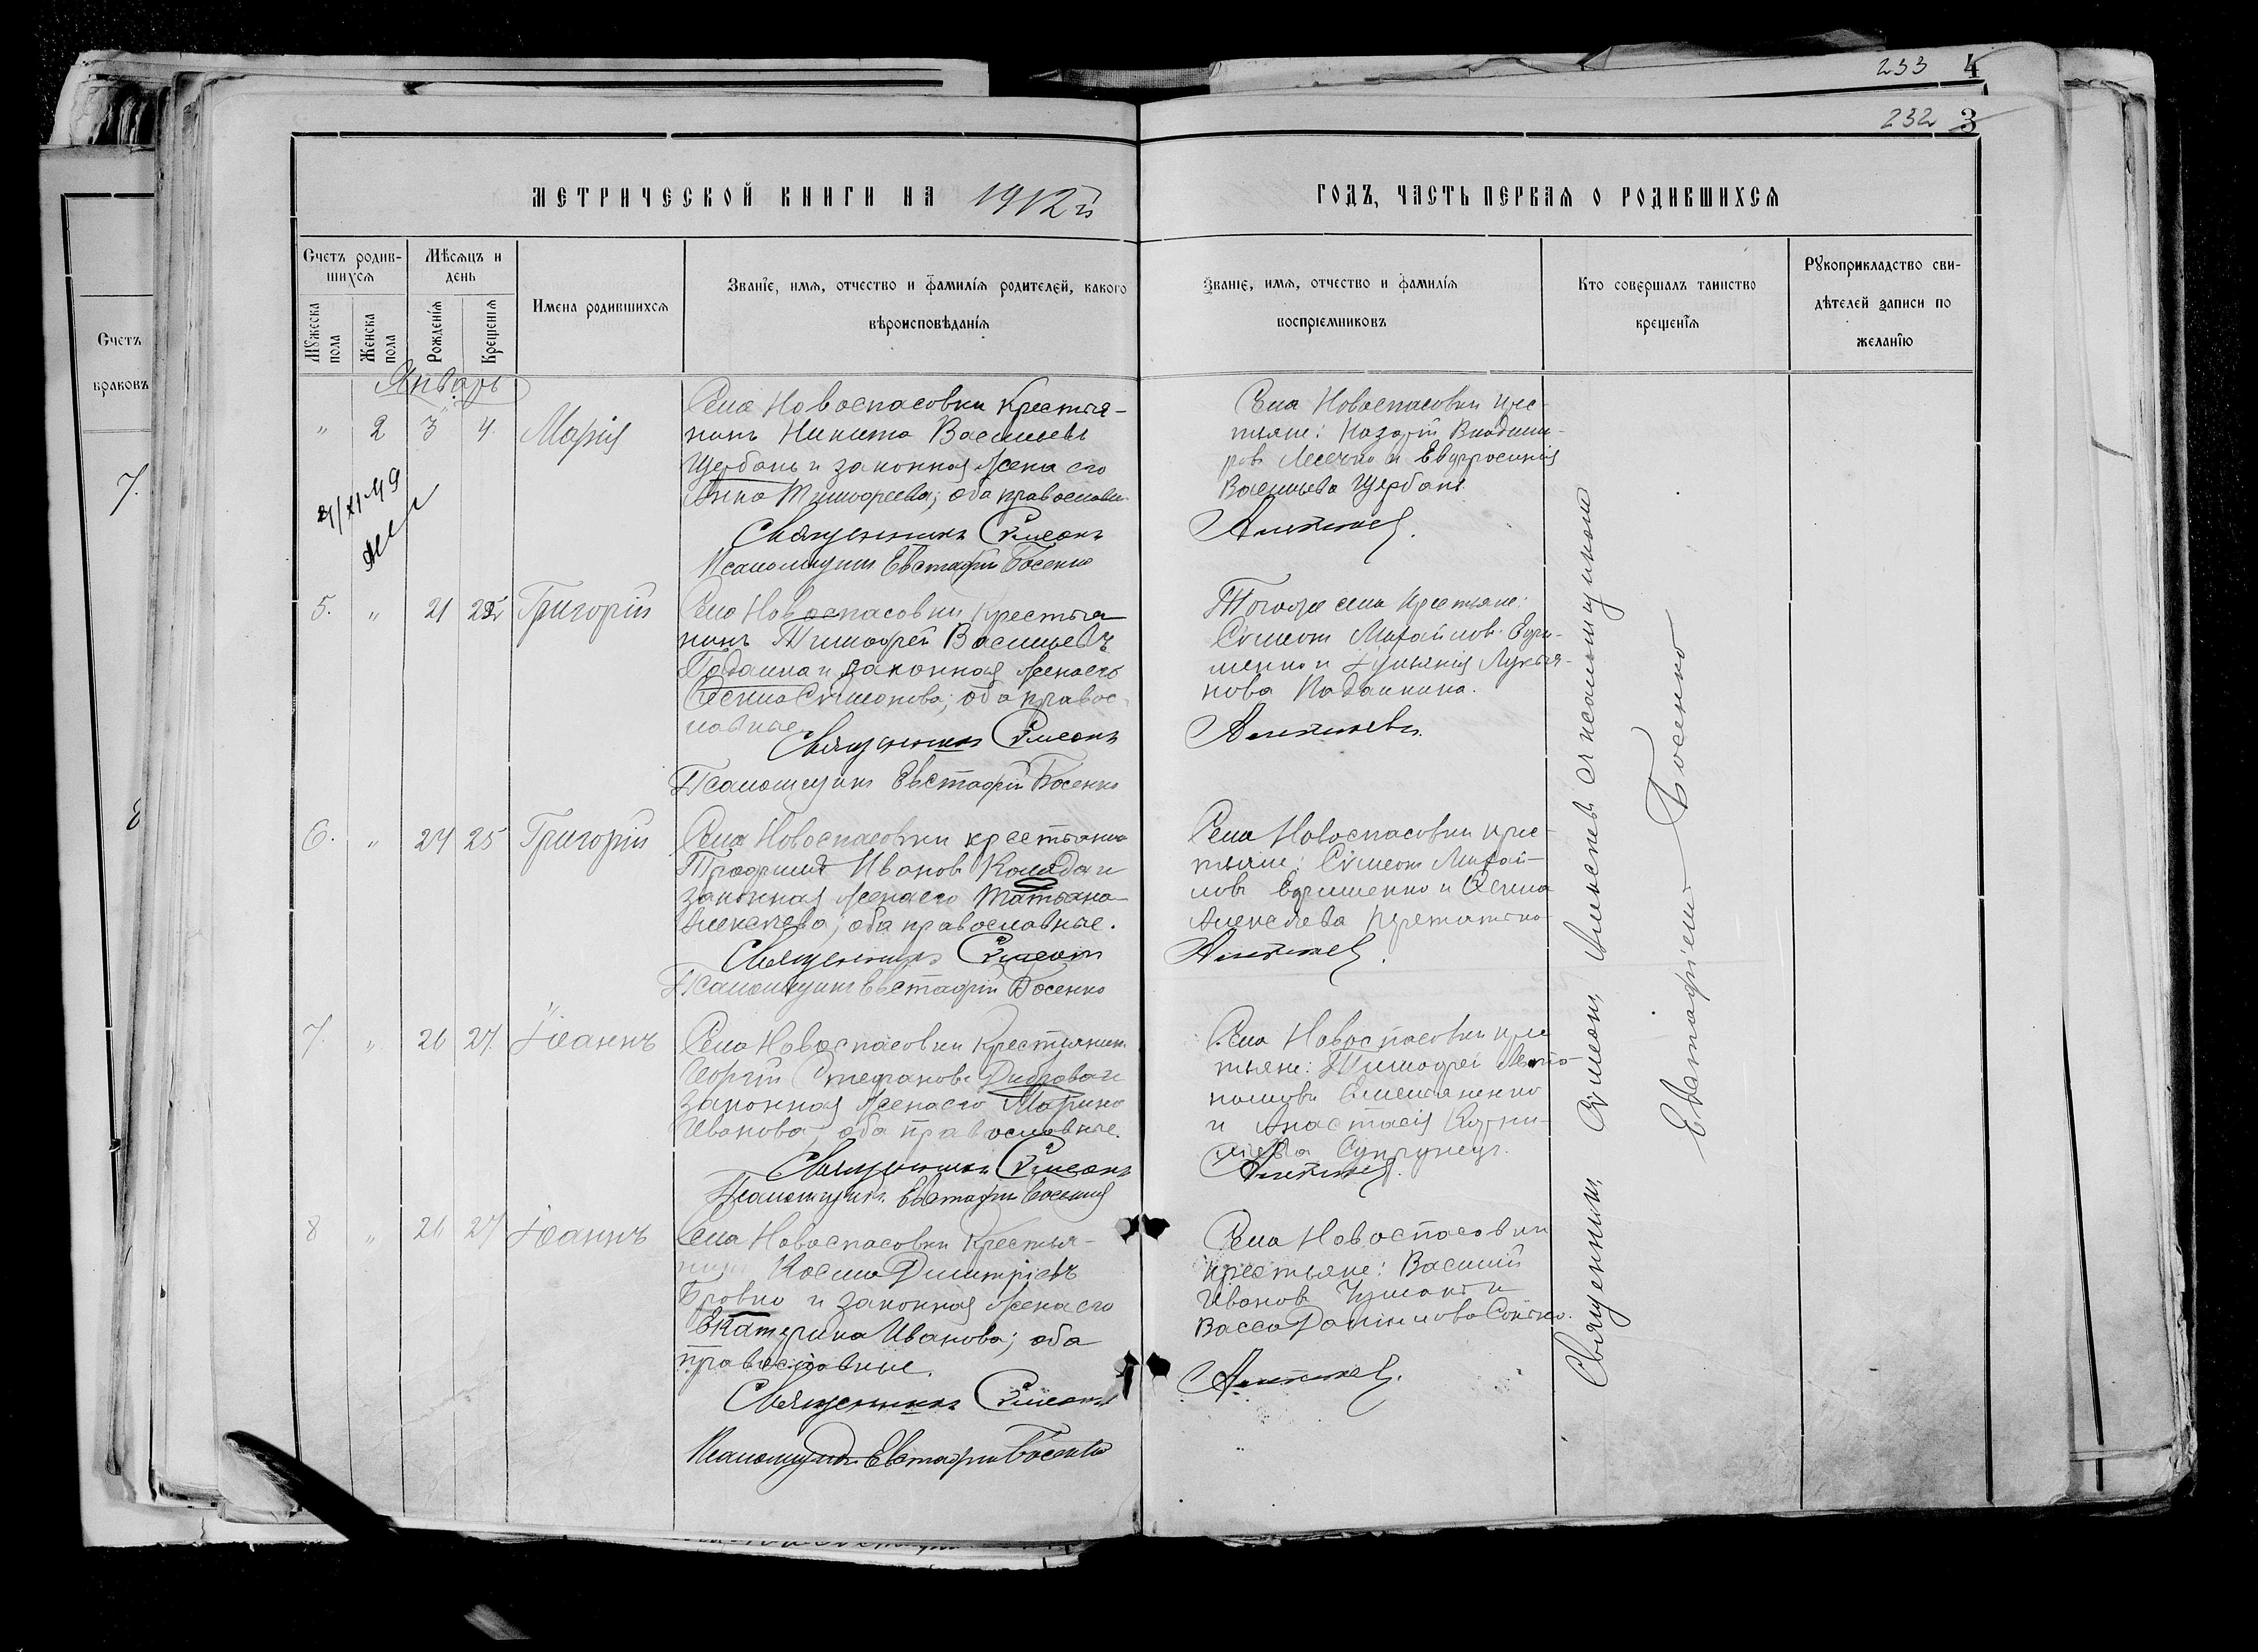 233 4
232 3
МЕТРИЧЕСКОЙ КНИГИ НА 1912й ГОДЪ, ЧАСТЬ ПЕРВАЯ О РОДИВШИХСЯ
Счетъ
браковъ
7.
8
Счетъ родив-
шихся
Мѹжеска пола
Женска пола
Мѣсяцъ и
день
Рожденія
Крещенія
Имена родившихся
Званїе, имя, отчество и фамилїя родителей, какого
вѣроисповѣданїя
Званїе, имя, отчество и фамилїя
воспрїемниковъ
Кто совершалъ таинство
крещенїя
Рѹкоприкладство сви-
дѣтелей записи по
желанїю
Январь
" 2 3 4. Марія
Села Новоспасовки крестья-
нинъ Никита Васильевъ
Щербань и законная жена его
Анна Тимофеева; оба православн.
Священникъ Сѵмеонъ
Псаломщикъ Евстафій Босенко
Села Новоспасовки крес-
тьяне: Назарій Владими-
ровъ и Евфросинія
Васильева Щербань.
Алексѣевъ.
21/XI-49
5. " 21 22 Григорій
Села Новоспасовки крестья-
нинъ Тимофей Васильевъ
и законная жена его
Сѵмеонова; оба правос-
лавные.
Священникъ Сѵмеонъ
Псаломщикъ Евстафій Босенко
Тогоже села крестьяне:
Сѵмеонъ Михайловъ Ефри-
менко и Лукья-
нова
6. " 24 25 Григорій
Села Новоспасовки крестьянинъ
Трофимъ Ивановъ Коляда и
законная жена его Татьяна
Алексѣева; оба православные.
Священникъ Сѵмеонъ
Псаломщикъ Евстафій Босенко
Села Новоспасовки крес-
тьяне: Сѵмеонъ Михай-
ловъ Ефрименко и
Алексѣева
7. " 26 27. Іоаннъ
Села Новоспасовки крестьянинъ
Георгій Стефановъ Диброва и
законная жена его Марина
Иванова; оба православные.
Священникъ Сѵмеонъ
Псаломщикъ Евстафій Босенко
Села Новоспасовки крес
тьяне: Тимофей
и Анастасія
8 " 26 27 Іоаннъ
Села Новоспасовки крестья-
нинъ Косма Димитріевъ
Бровко и законная жена его
Екатерина Иванова; оба
православные.
Священникъ Сѵмеонъ
Псаломщикъ Евстафій Босенко
Села Новоспасовки
крестьяне: Василій
Ивановъ и
Васса Даніилова
Священникъ Сѵмеонъ съ псаломщикомъ
Евстафіемъ Босенко